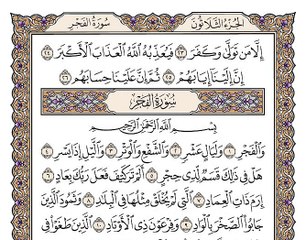 سُورَةُ الفَجْرِ الجُزْءُ الثَّلَاثُونَ
إِلَّا مَن تَوَلَّىٰ وَكَفَرَ ٢٣ فَيُعَذِّبُهُ اللَّهُ الْعَذَابَ الْأَكْبَرَ ٢٤
إِنَّ إِلَيْنَا إِيَابَهُمْ ٢٥ ثُمَّ إِنَّ عَلَيْنَا حِسَابَهُم ٢٦
سُورَةُ الفَجْرِ
بِسْمِ اللَّهِ الرَّحْمَٰنِ الرَّحِيمِ
وَالْفَجْرِ ١ وَلَيَالٍ عَشْرٍ ٢ وَالشَّفْعِ وَالْوَتْرِ ٣ وَاللَّيْلِ إِذَا يَسْرِ ٤
هَلْ فِي ذَٰلِكَ قَسَمٌ لِّذِي حِجْرٍ ٥ أَلَمْ تَرَ كَيْفَ فَعَلَ رَبُّكَ بِعَادٍ ٦
إِرَمَ ذَاتِ الْعِمَادِ ٧ الَّتِي لَمْ يُخْلَقْ مِثْلُهَا فِي الْبِلَادِ ٨ وَثَمُودَ الَّذِينَ
جَابُوا الصَّخْرَ بِالْوَادِ ٩ وَفِرْعَوْنَ ذِي الْأَوْتَادِ ١٠ الَّذِينَ طَغَوْا فِي